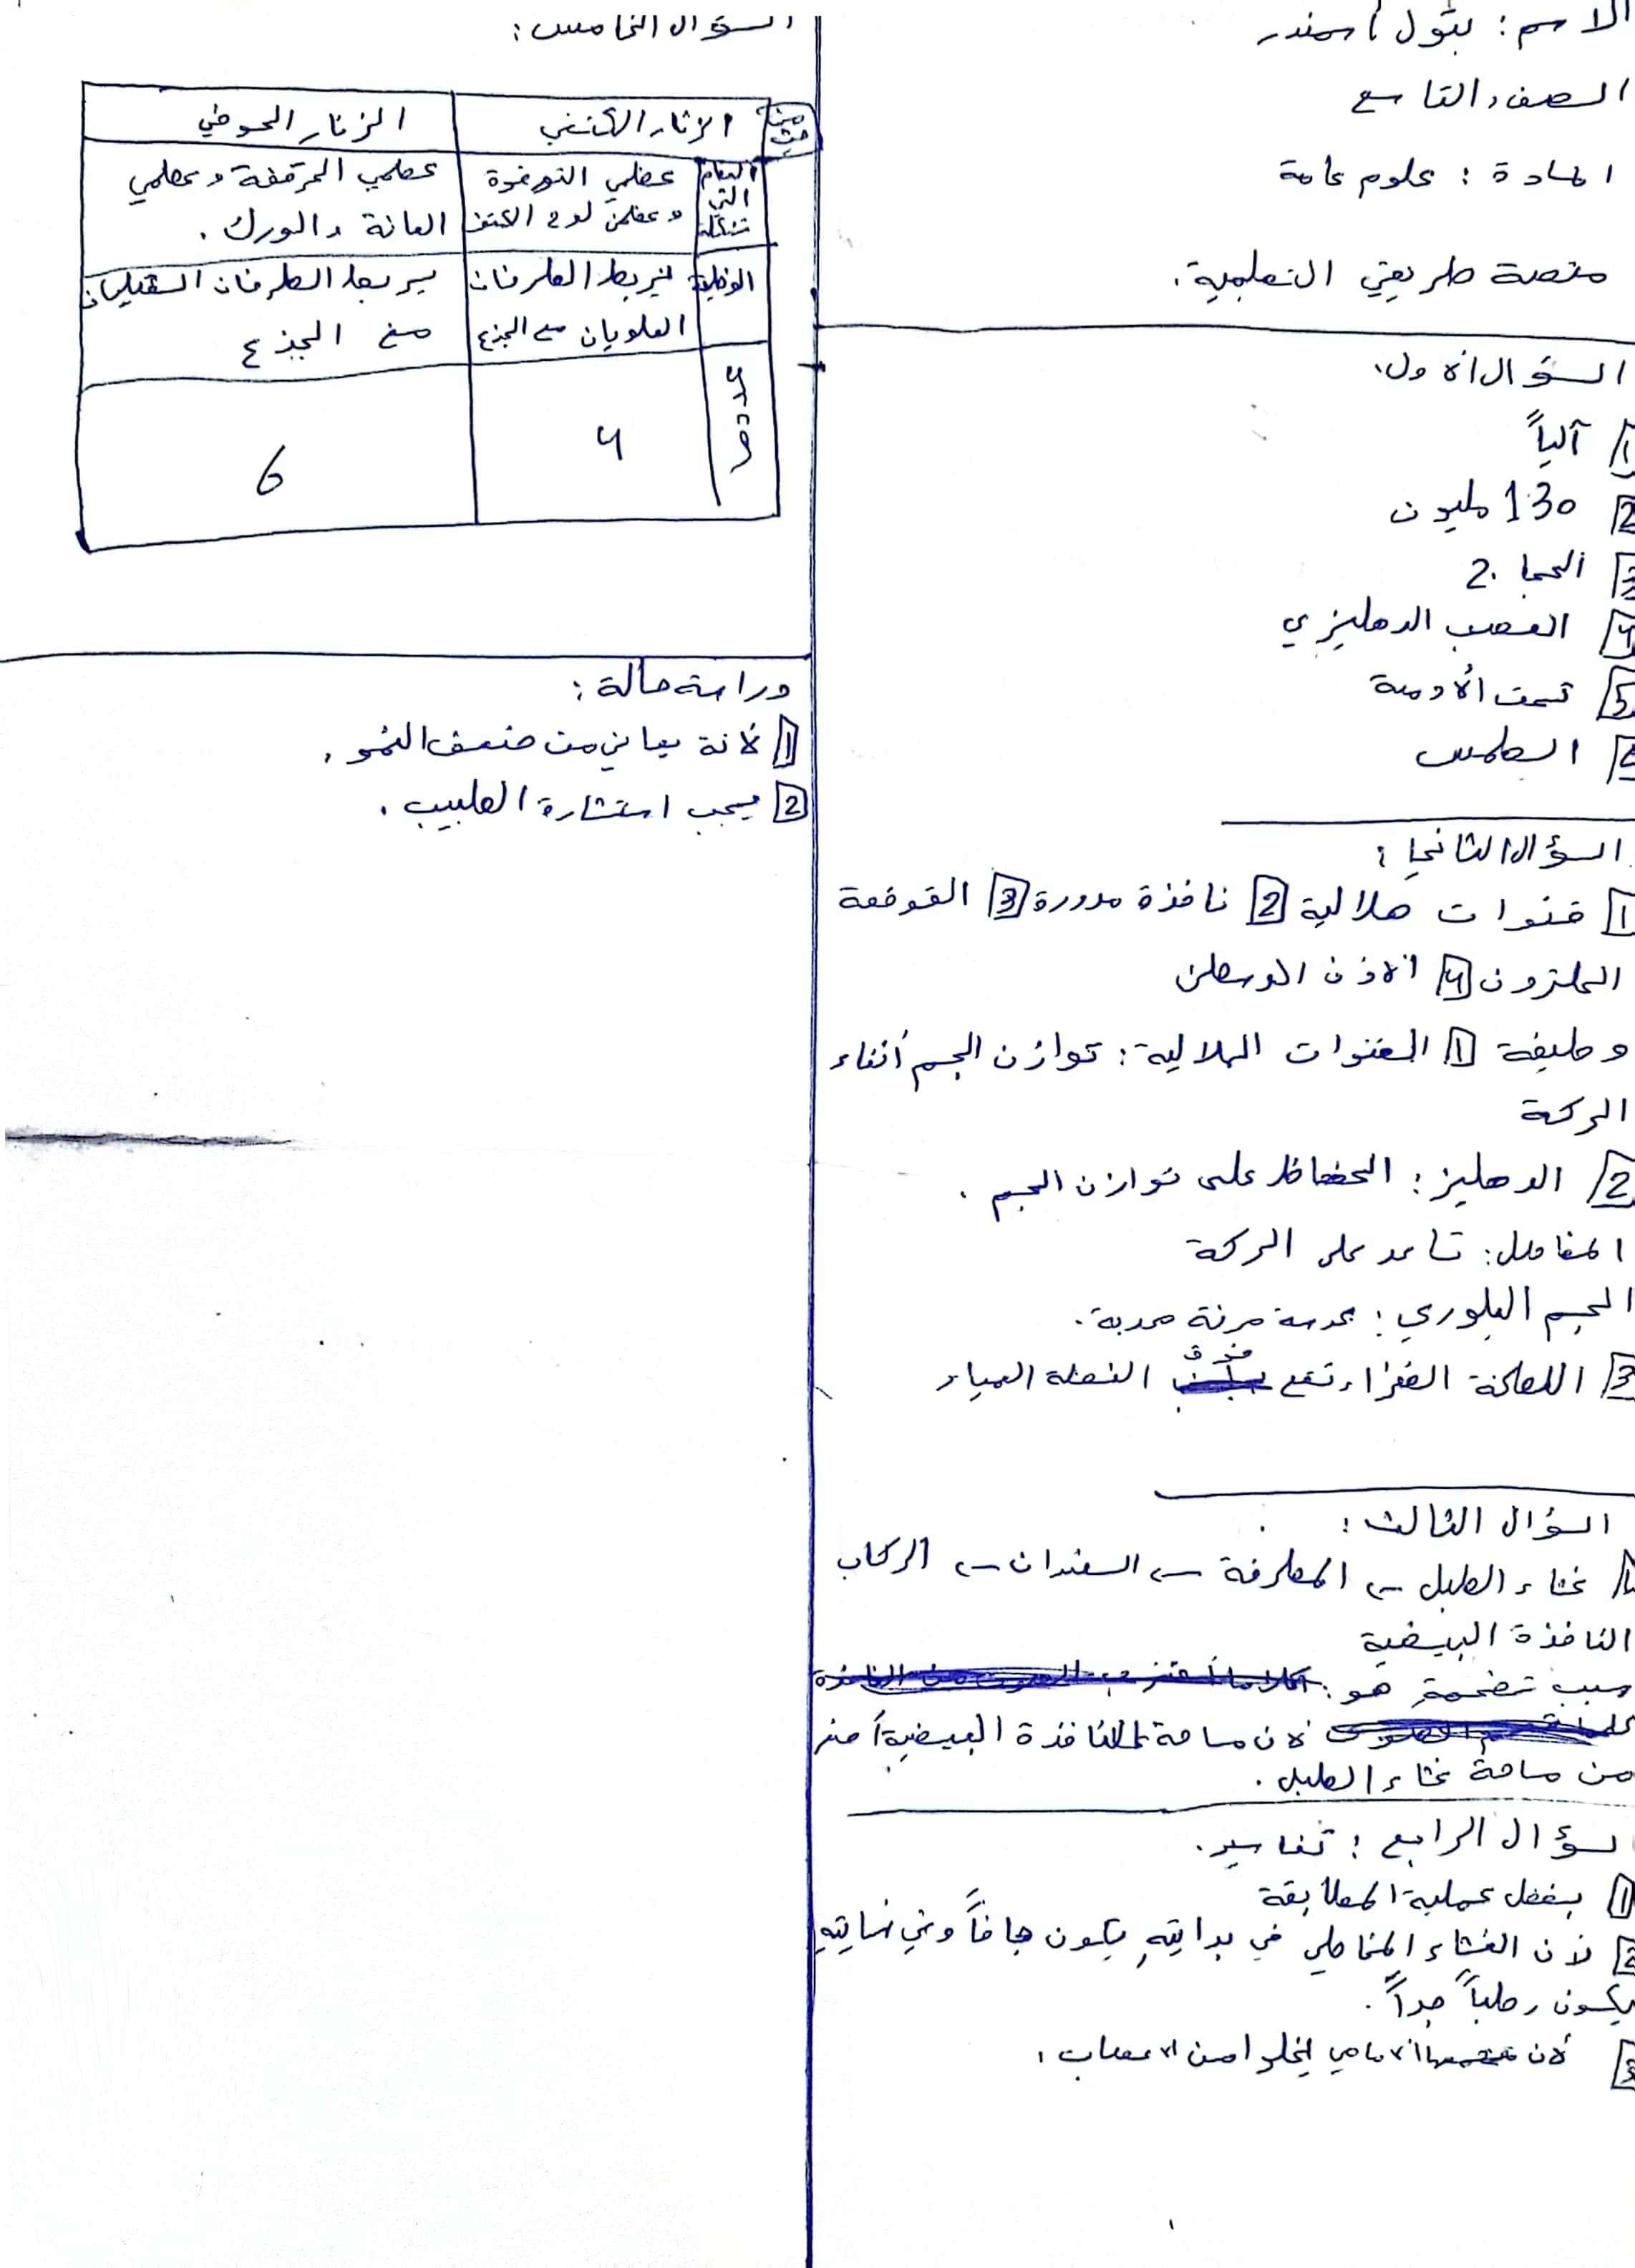 الاسم : بتول اسمندر
الصف التاسع
المادة : علوم عامة
منصة طريقي التعلمية .
السؤال الاول
1 آلياً
2 130 مليون
3 الحجا . 2
4 العصب الدهليزي
5 تحت الأدمة
6 الطمس
السؤال الثاني :
1 قنوات هلالية 2 نافذة مدورة 3 القوقعة
الحلزون 4 الاذن الوسطى
وظيفة 1 القنوات الهلالية : توازن الجسم أثناء
الركة
2 الدهليز : الحفاظ على توازن الجسم .
المفاصل : تساعد على الركة
الجسم البلوري : عدسة مرنة محدبة .
3 اللطخة الصفراء تقع فوق النقطة العمياء
السؤال الثالث :
1 غشاء الطبل ← المطرقة ← السندان ← الركاب
النافذة البيضية
سبب تضخمة هو :
لان مساحة النافذة البيضية أصغر
من مساحة غشاء الطبل .
السؤال الرابع : تفاسير .
1 بفضل عملية المطابقة
2 لان الغشاء المخاطي في بدايته يكون جافاً وفي نهايته
يكون رطباً جداً .
3 لأن الامامي يخلوا من الاعصاب .
السؤال الخامس :
من حيث الزنار الكتفي الزنار الحوضي
العظام التي تشكله عظمي الترقوة عظمي الحرقفة وعظمي
وعظمي لوح الكتف العانة والورك .
الوظيفة يربط الطرفان يربط الطرفان السفليان
العلويان مع الجذع مع الجذع
عددها 4 6
دراسة حالة :
1 لأنة يعاني من ضعف النمو .
2 يجب استشارة الطبيب .